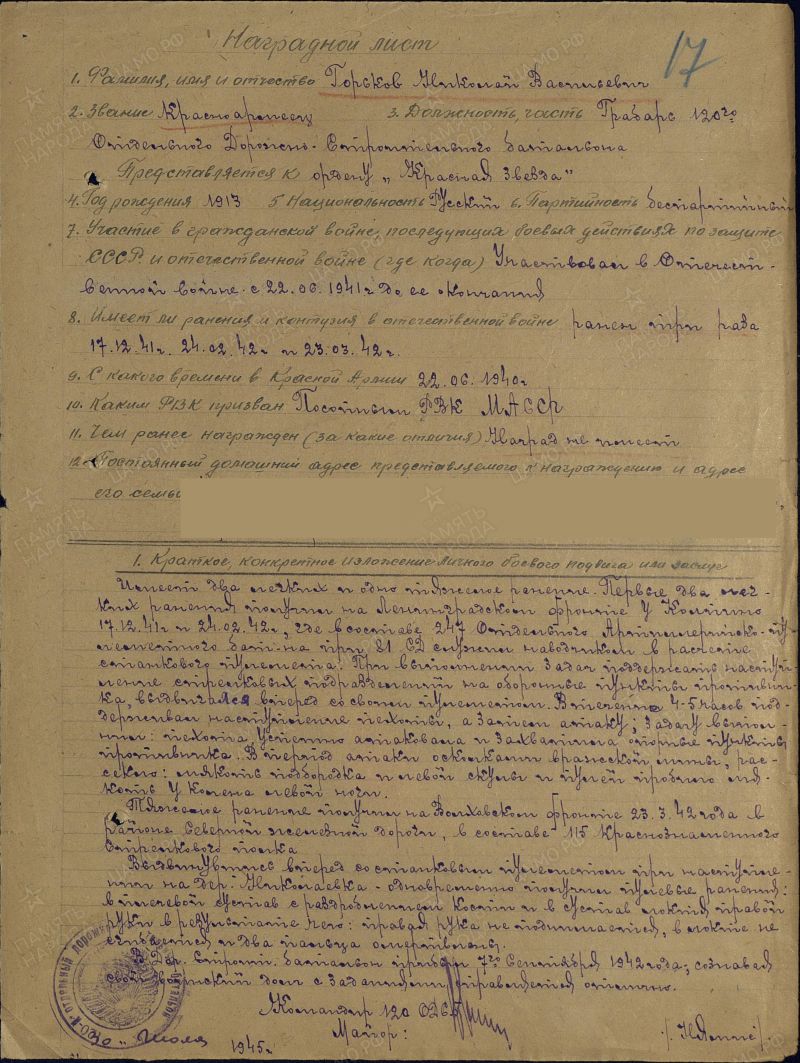 Наградной лист
17
1. Фамилия, имя и отчество Горьков Николай Васильевич
2. Звание Красноармеец 3. Должность, часть Грабарь 120го
Отдельного Дорожно-Строительного батальона
Представляется к ордену „Красная Звезда"
4. Год рождения 1913 5 Национальность Русский 6. Партийность беспартийный
7. Участие в гражданской войне, последующих боевых действиях по защите
СССР и отечественной войне (где когда) Участвовал в Отечест-
венной войне с 22.06.1941г до ее окончания
8. Имеет ли ранения и контузия в отечественной войне ранен три раза
17.12.41г. 24.02.42г и 23.03.42г.
9. С какого времени в Красной Армии 22.06.1940г
10. Каким РВК призван РВК МАССР
11. Чем ранее награжден (за какие отличия) Наград не имеет
12. Постоянный домашний адрес представляемого к награждению и адрес
его семьи
1. Краткое, конкретное изложение личного боевого подвига или заслуг
Имеет два легких и одно тяжелое ранение. Первые два лег-
ких ранения получил на Ленинградском фронте у Колпино
17.12.41г и 24.02.42г, где в составе 247 Отдельного Артиллерийско-пу-
леметного бат-на при 21 СД служил наводчиком в расчете
станкового пулемета. При выполнении задач поддержать наступ-
ление стрелковых подразделений на оборонные пункты противни-
ка, выдвигался вперед со своим пулеметом. В течении 4-5 часов под-
держивал наступление пехоты, а затем атаку; задачу выпол-
нил: пехота успешно атаковала и захватила опорные пункты
противника. В период атаки осколками вражеской мины, рас-
секло: мякоть подбородка и левой скулы и пулей пробило мя-
коть у колена левой ноги.
Тяжелое ранение получил на Волховском фронте 23.3.42 года в
районе Северной железной дороги, в составе 115 Краснознаменного
Стрелкового полка.
Выдвинувшись вперед со станковым пулеметом при наступле-
нии на дер. Николаевка - одновременно получил пулевые ранения:
в плечевой сустав с раздроблением кости и в сустав локтя правой
руки в результате чего: правая рука не поднимается, в локте не
сгибается и два пальца омертвлены.
В Дор. Строит. батальон прибыл 7го Сентября 1942 года, сознавая
свой воинский долг с заданиями справляется отлично.
Командир 120 ОДСБ
Майор:
„30" Июля
1945г.